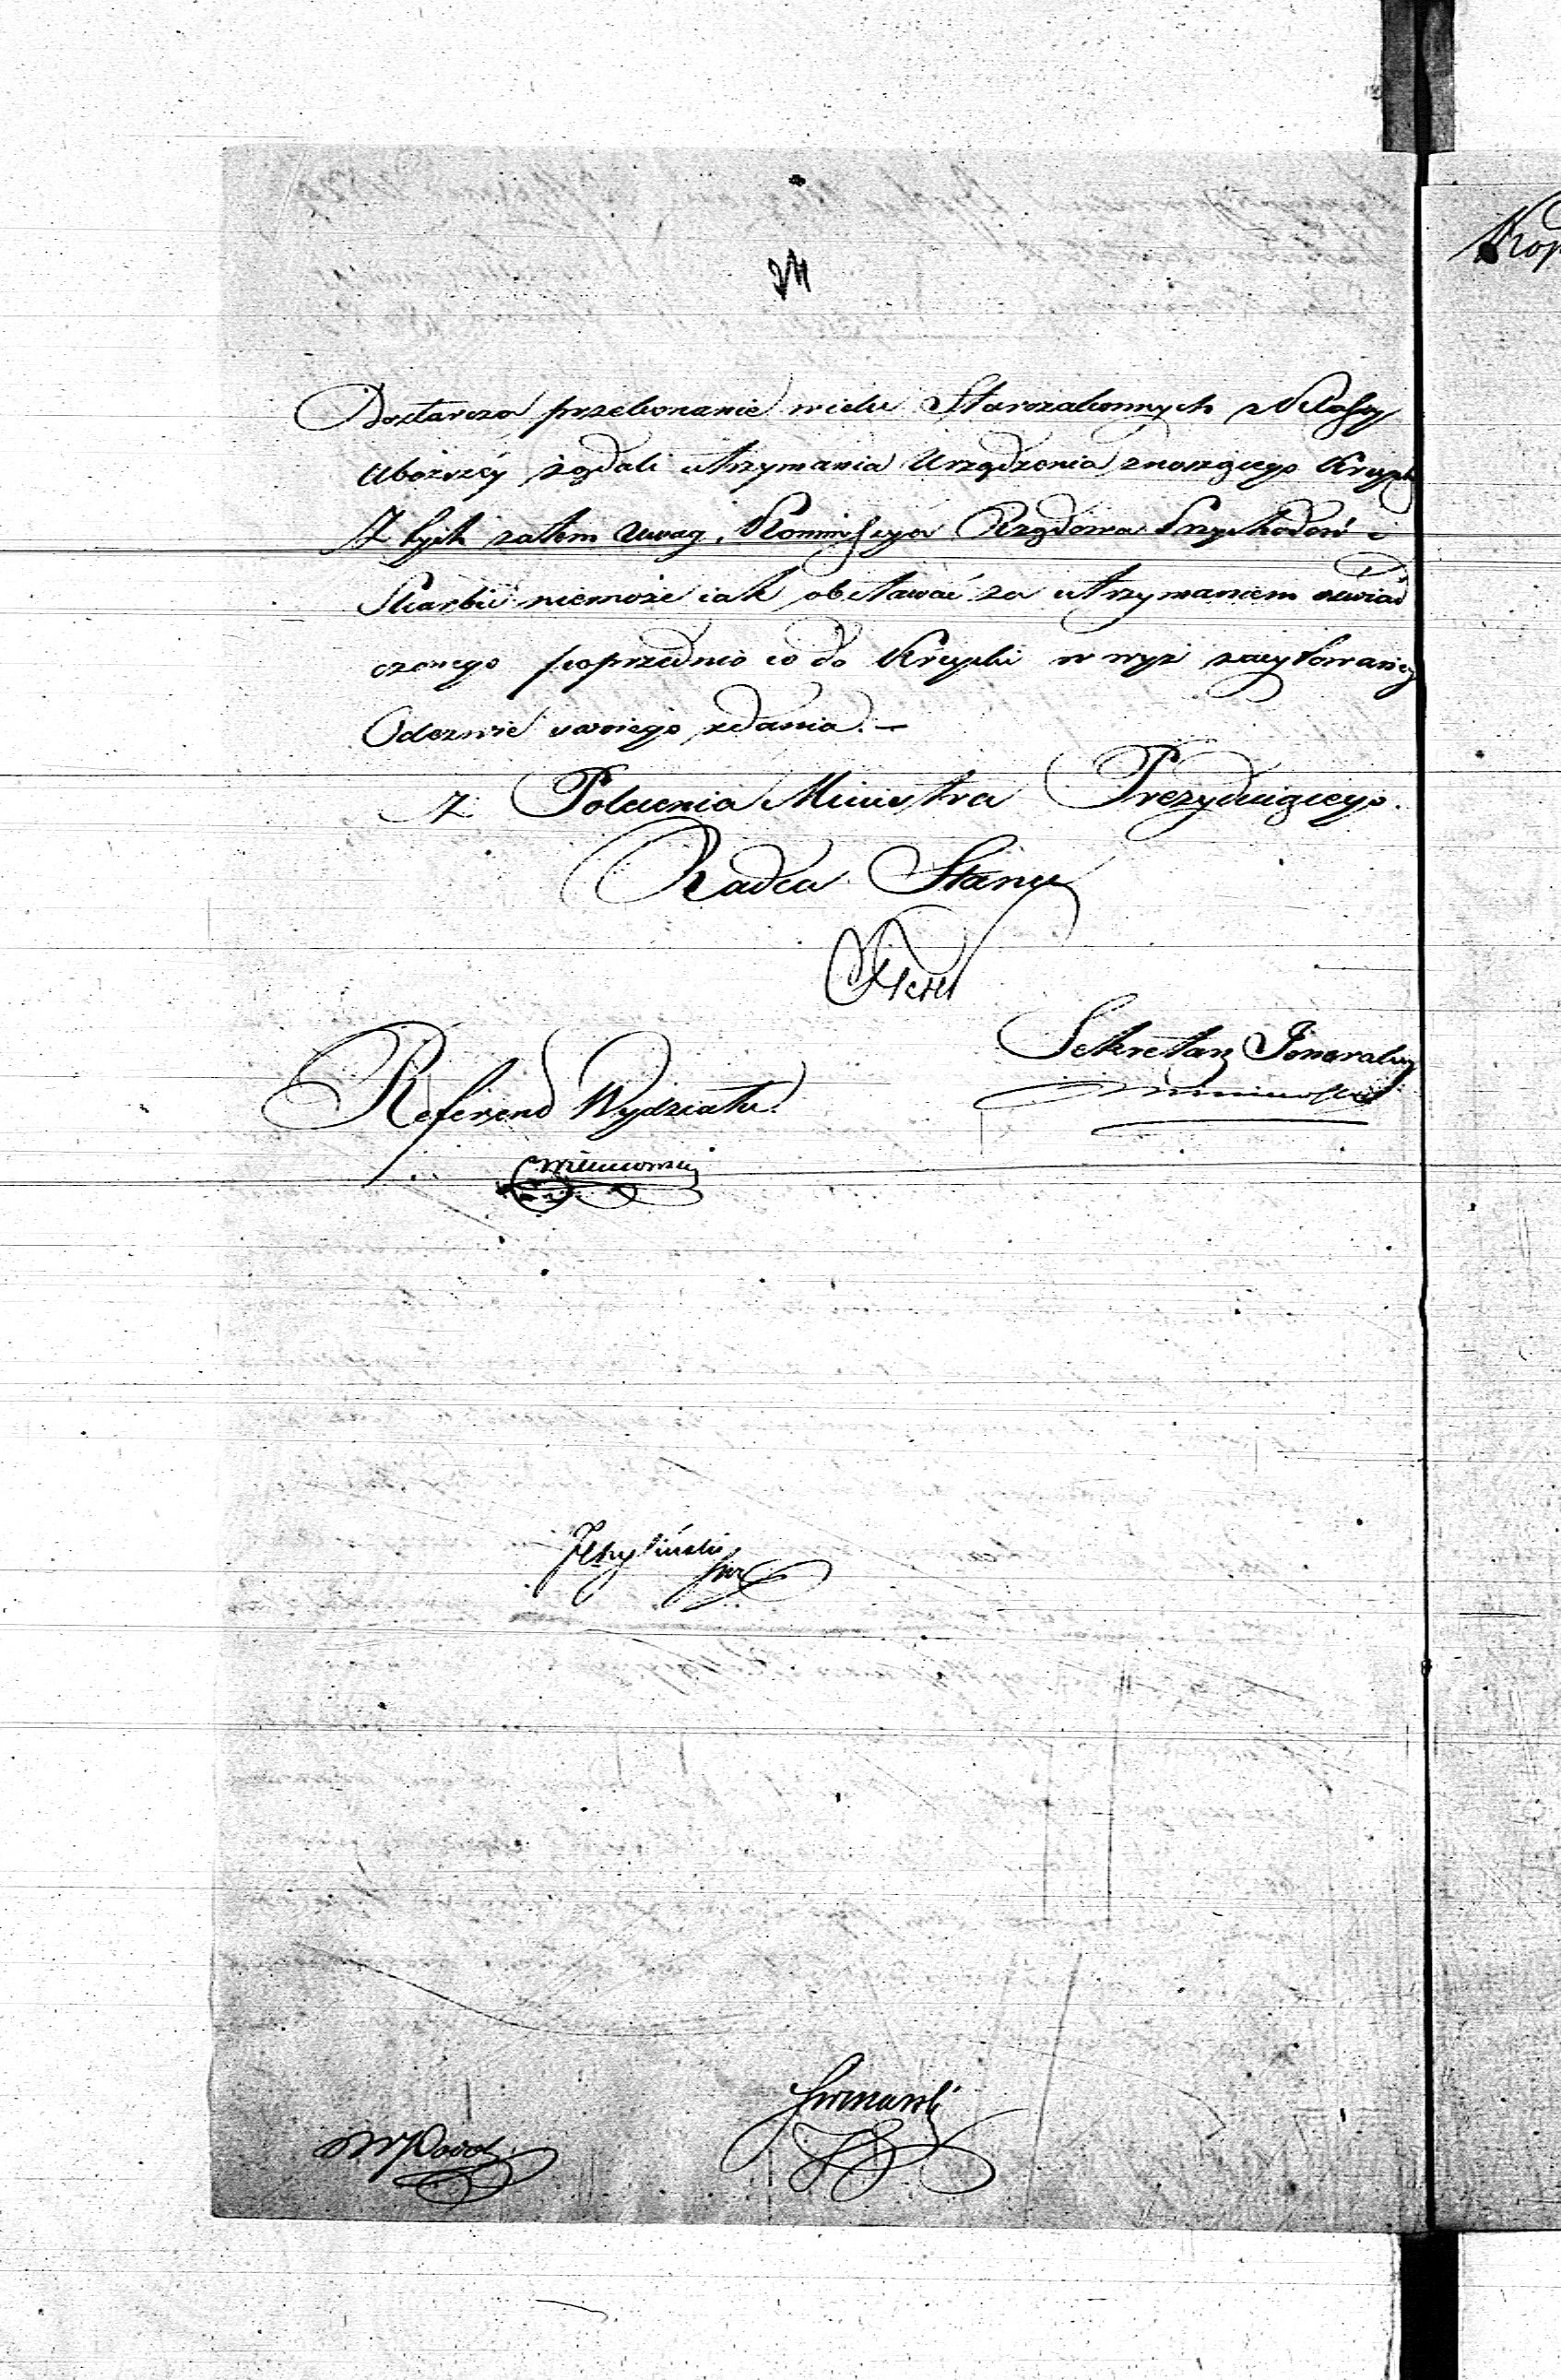 24
Dostarcza przekonanie wielu Starozakonnych z Klassy
uboższéy żądali utrzymania Urządzenia znoszącego Krupki
Z tych zatém uwag, Kommissya Rządowa Przychodów i
Skarbu niemoże iak obstawać za utrzymaniem oświad
czonego poprzednio co do Krupki w wyż zacytowanéy
Odezwie swoiego zdania. —
Z Polecenia Ministra Prezyduiącego.
Radca Stanu
Sekretarz Jeneralny
Referend Wydziału
Kop